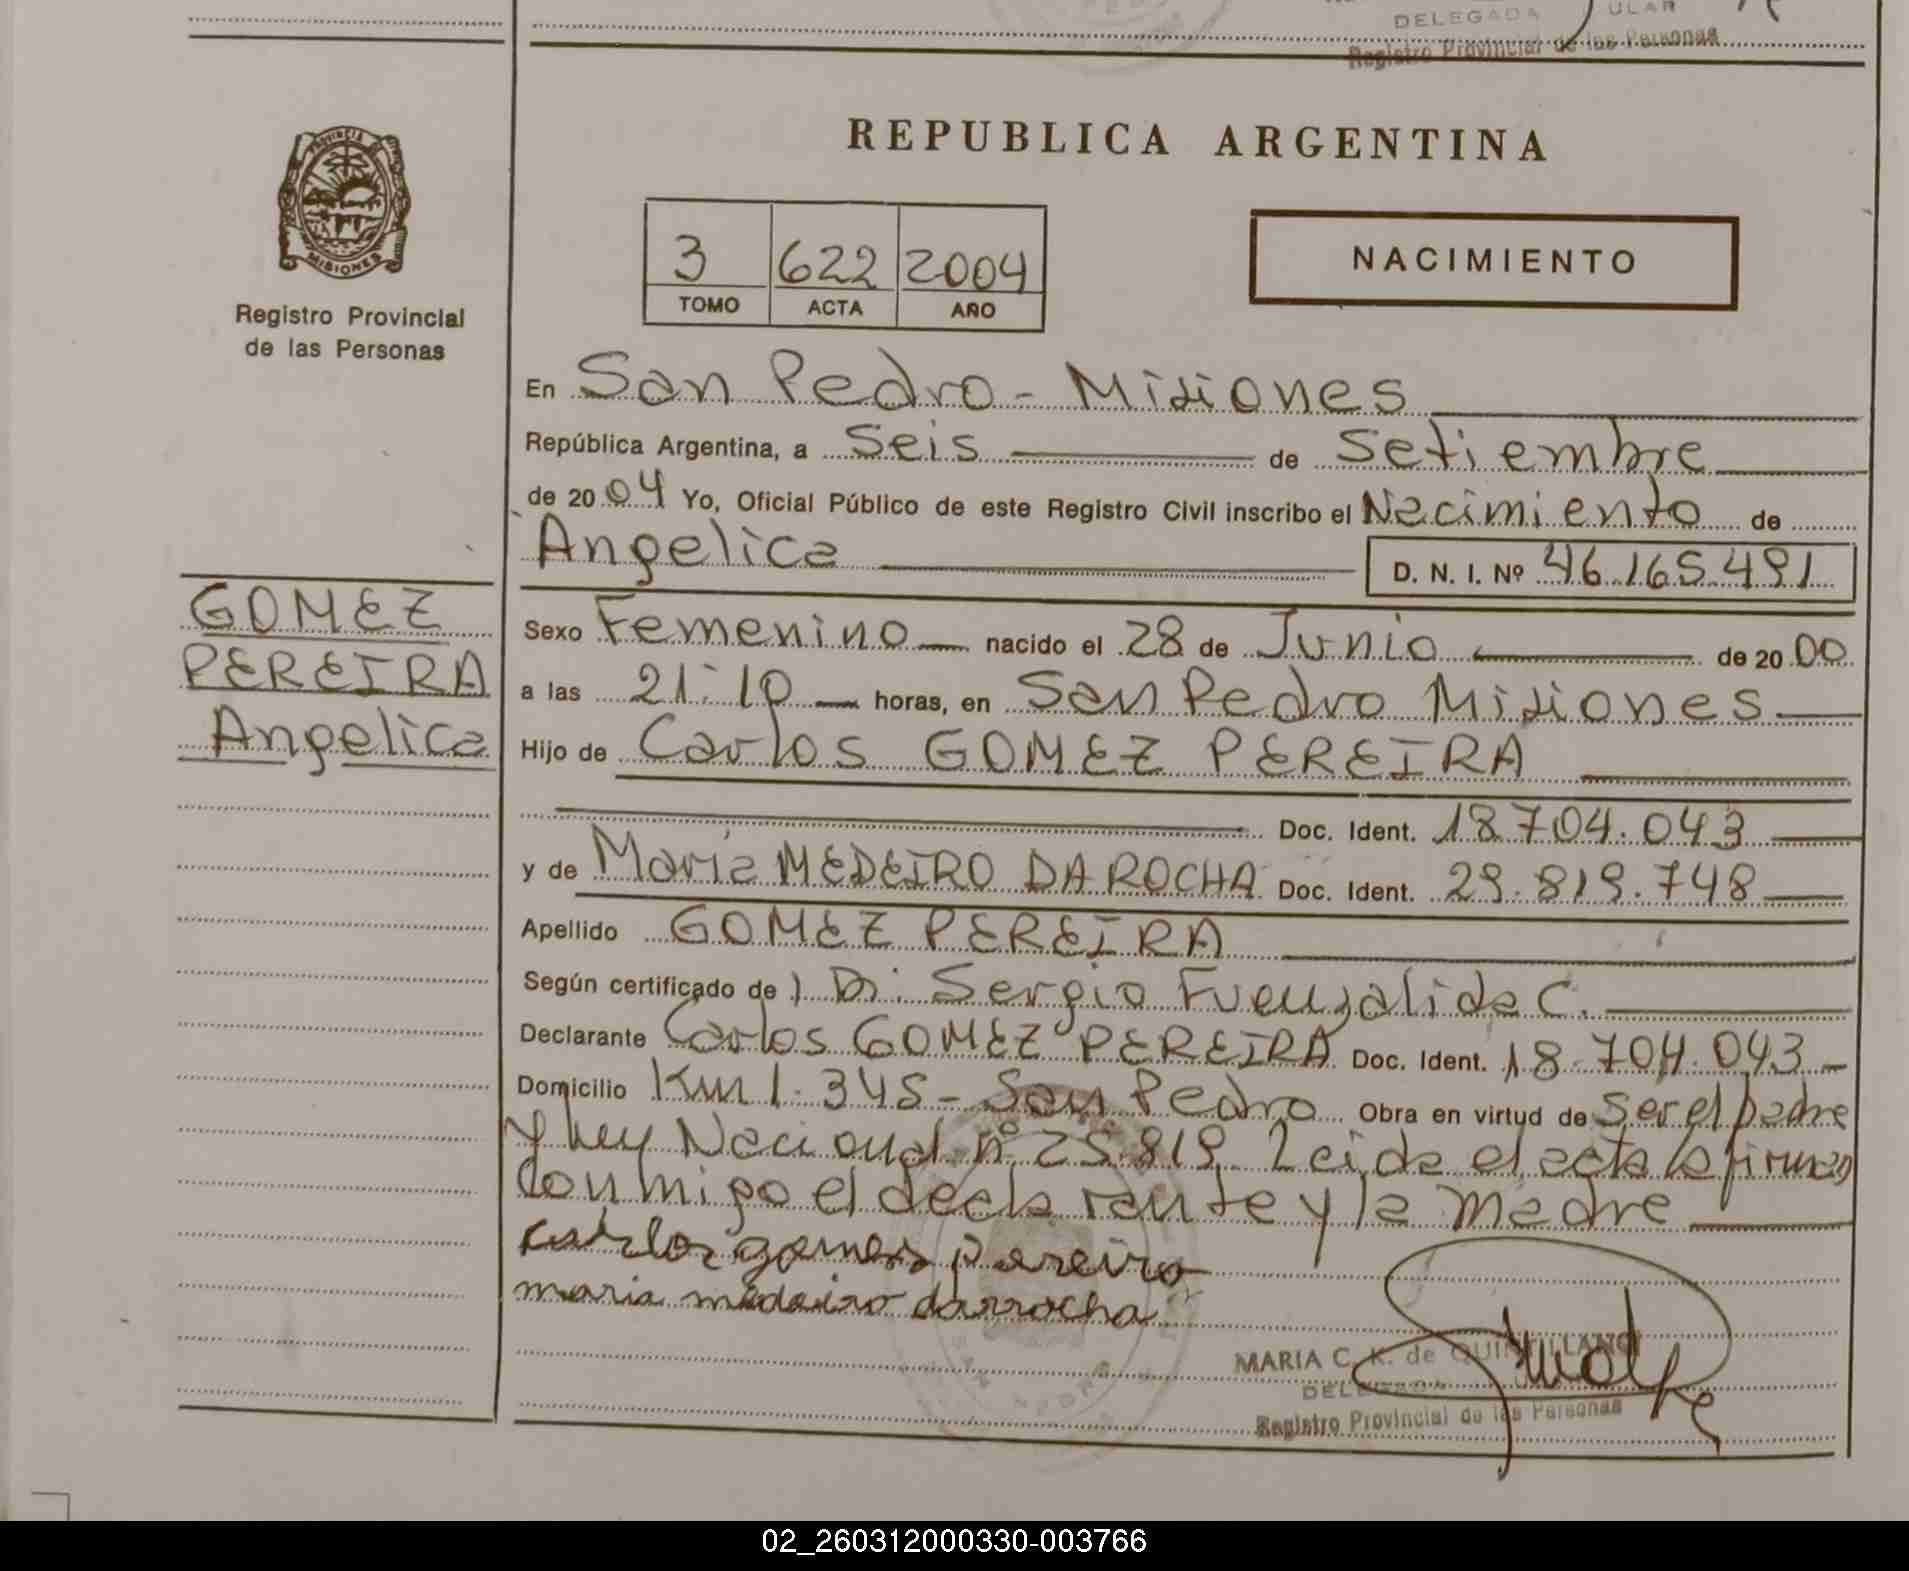 DELEGADA
ULAR
Registro Provincial de las Personas
PROVINCIA
MISIONES
Registro Provincial
de las Personas
REPUBLICA ARGENTINA
3 622 2004
TOMO ACTA AÑO
NACIMIENTO
En San Pedro - Misiones
República Argentina, a Seis de Setiembre
de 2004 Yo, Oficial Público de este Registro Civil inscribo el Nacimiento de
Angelica D. N. I. Nº 46.165.491
GOMEZ
PEREIRA
Angelica
Sexo Femenino nacido el 28 de Junio de 2000
a las 21:10 horas, en San Pedro Misiones
Hijo de Carlos GOMEZ PEREIRA
Doc. Ident. 18.704.043
y de Maria MEDEIRO DA ROCHA Doc. Ident. 29.819.748
Apellido GOMEZ PEREIRA
Según certificado de Dr. Sergio Fuenzalida C.
Declarante Carlos GOMEZ PEREIRA Doc. Ident. 18.704.043
Domicilio Km 1.345 - San Pedro Obra en virtud de ser el padre
y Ley Nacional nº 25.819 Leida el acta la firman
conmigo el declarante y la madre
carlos gomes pereira
maria medeiro darrocha
MARIA C. K. de QUINTILLAN
DELEGADA
Registro Provincial de las Personas
02_260312000330-003766